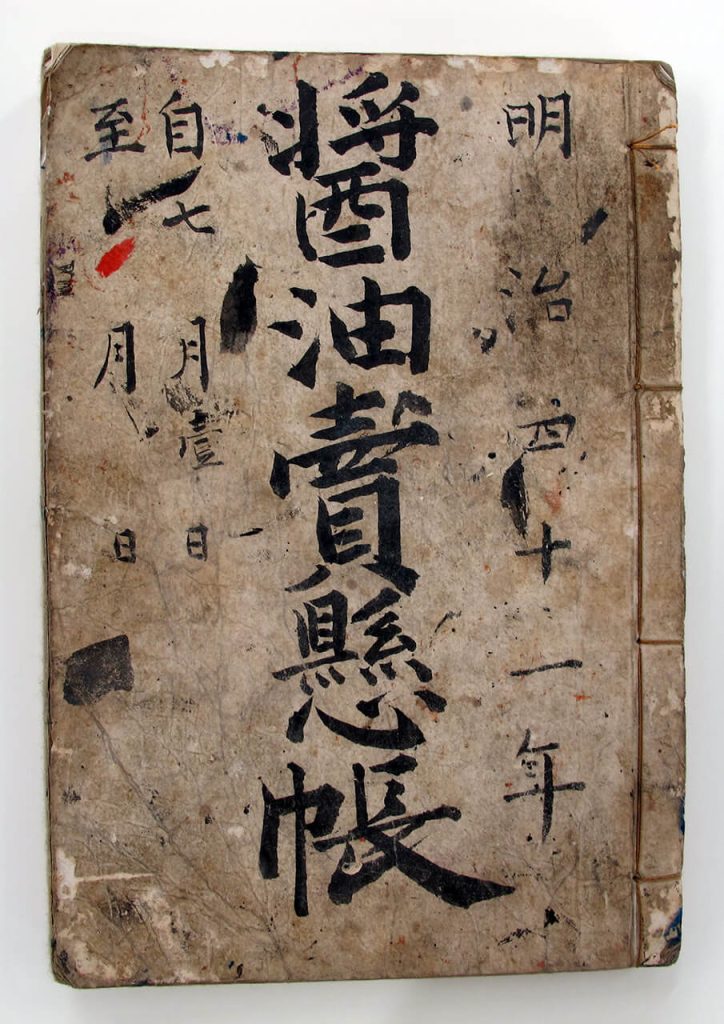 明治四十一年
醤油賣懸帳
自七月壹日
至 月 日